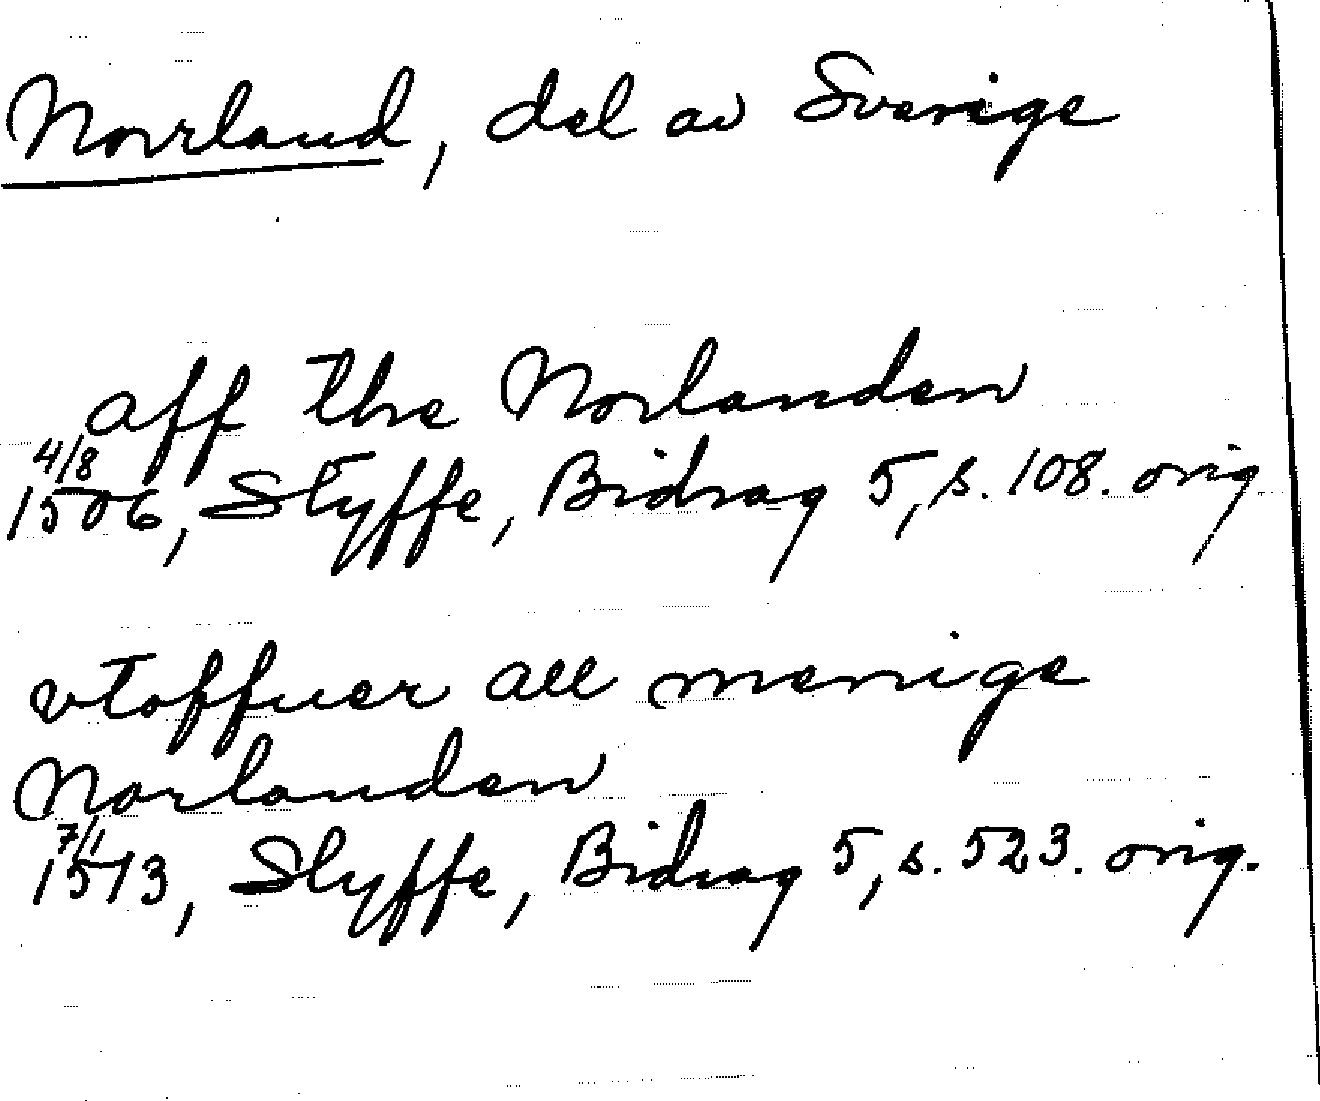 Norrland, del av Sverige
aff the Norlanden
4/8
1506, Styffe, Bidrag 5, s. 108. orig
vtoffuer all menige
Norlanden
7/1
1513, Styffe, Bidrag 5, s. 523. orig.